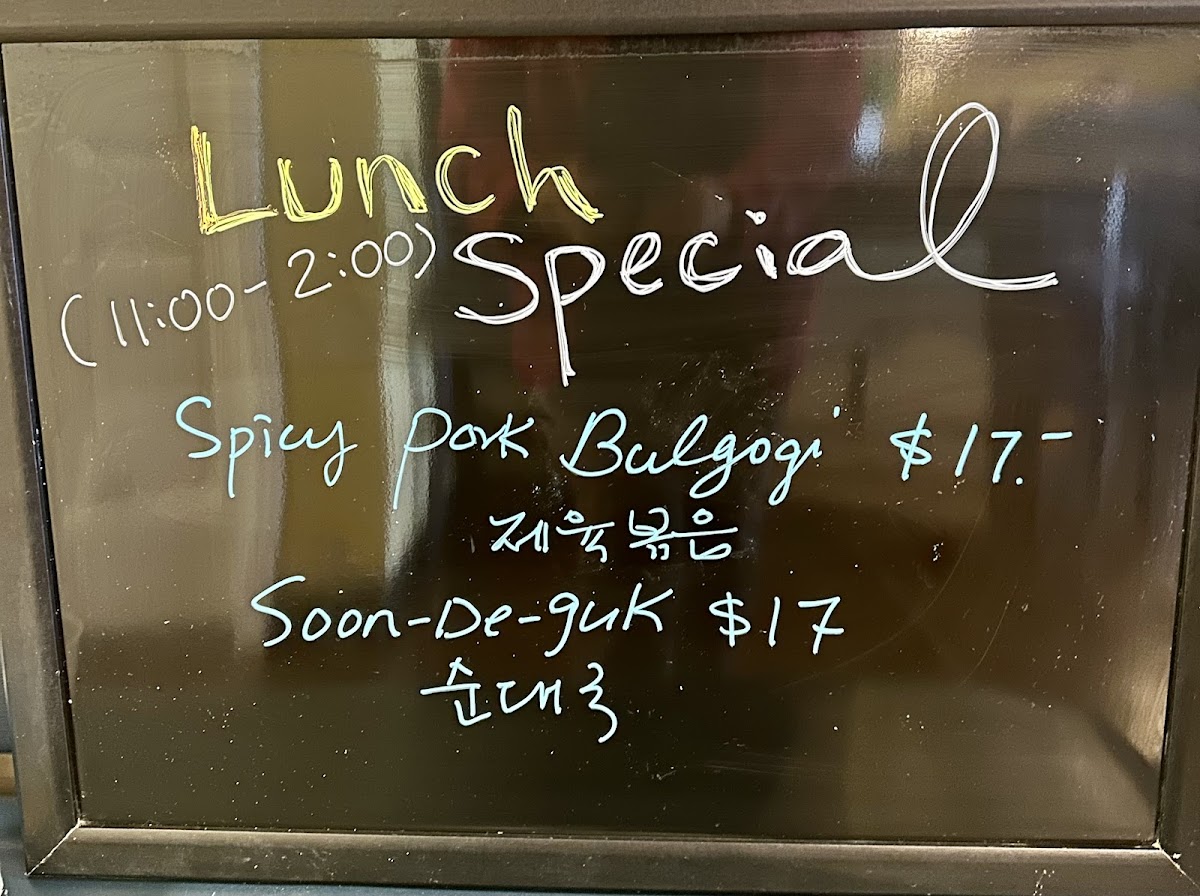 Lunch
(11:00-2:00) Special
Spicy Pork Bulgogi $17.-
제육볶음
Soon-De-guk $17
순대국